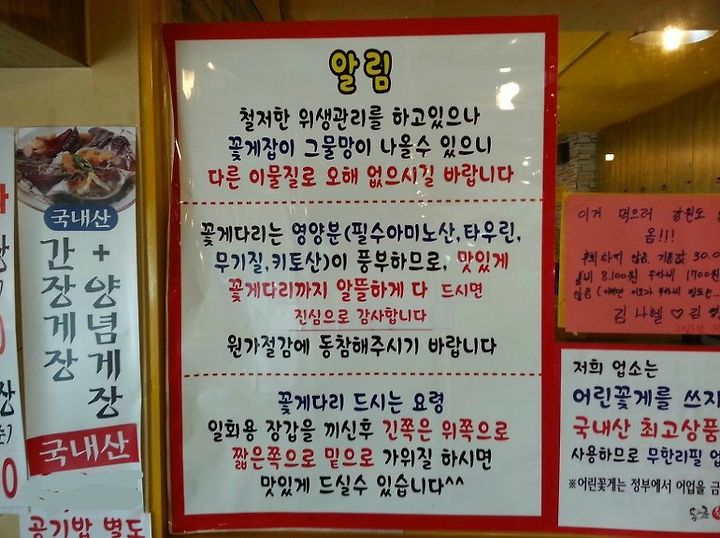 알림
철저한 위생관리를 하고있으나
꽃게잡이 그물망이 나올수 있으니
다른 이물질로 오해 없으시길 바랍니다
꽃게다리는 영양분(필수아미노산,타우린,
무기질,키토산)이 풍부하므로, 맛있게
꽃게다리까지 알뜰하게 다 드시면
진심으로 감사합니다
원가절감에 동참해주시기 바랍니다
꽃게다리 드시는 요령
일회용 장갑을 끼신후 긴쪽은 위쪽으로
짧은쪽으로 밑으로 가위질 하시면
맛있게 드실수 있습니다^^
국내산
간장게장
+양념게장
국내산
공기밥 별도
이거 먹으러 강원도
옴!!!
8.100원
1700원
김 나헬 ♡ 김
저희 업소는
어린꽃게를 쓰지
국내산 최고상품
사용하므로 무한리필
※어린꽃게는 정부에서 어업을 금